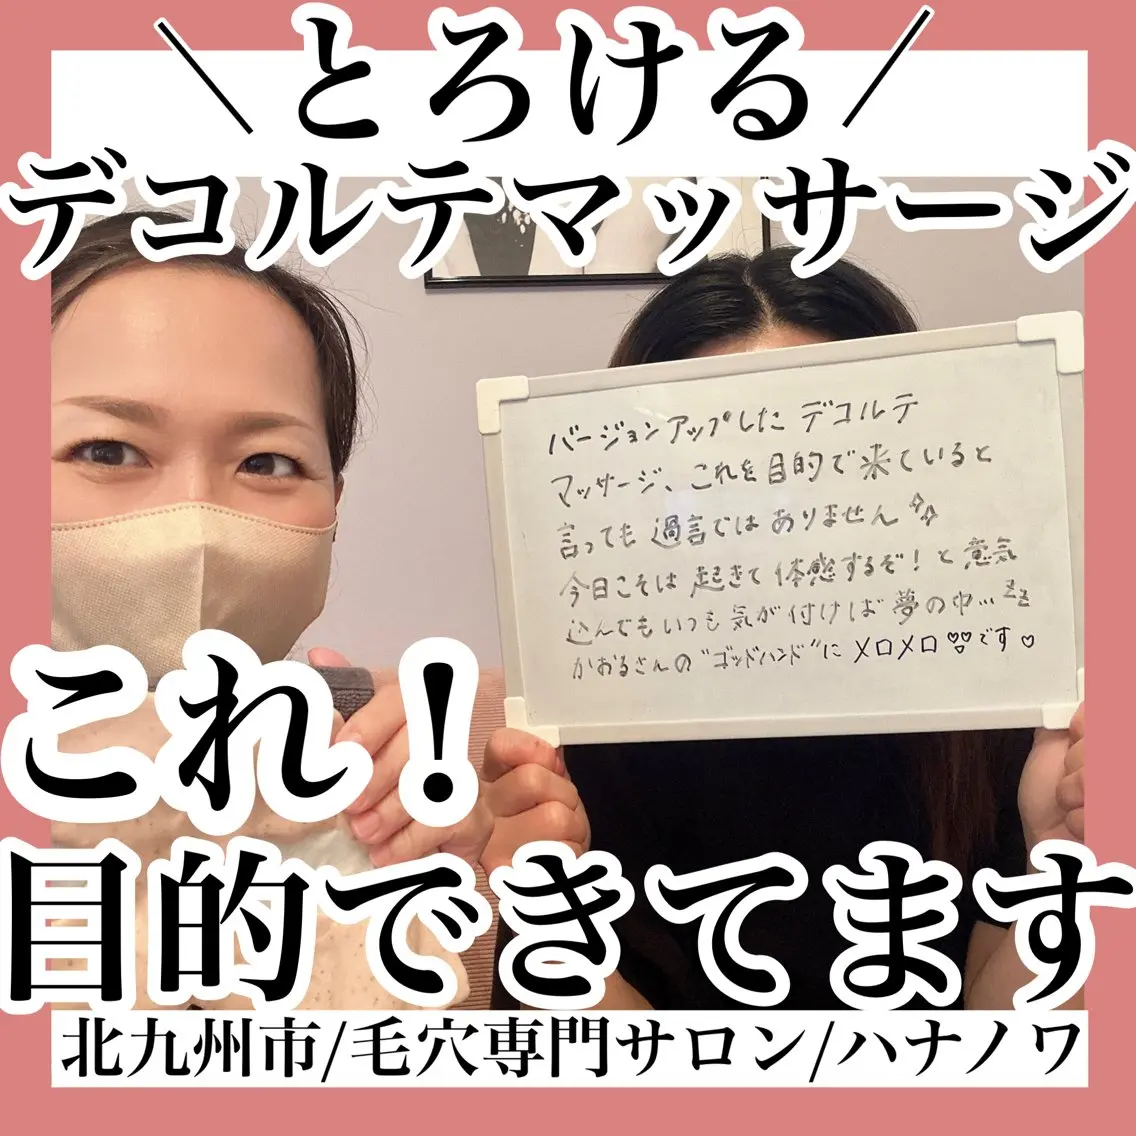 \とろける/
デコルテマッサージ
バージョンアップしたデコルテ
マッサージ、これを目的で来ていると
言っても過言ではありません
今日こそは起きて体感するぞ!と意気
込んでもいつも気が付けば夢の中…zz
かおるさんの"ゴッドハンド"にメロメロです♡
これ!
目的できてます
北九州市/毛穴専門サロン/ハナノワ